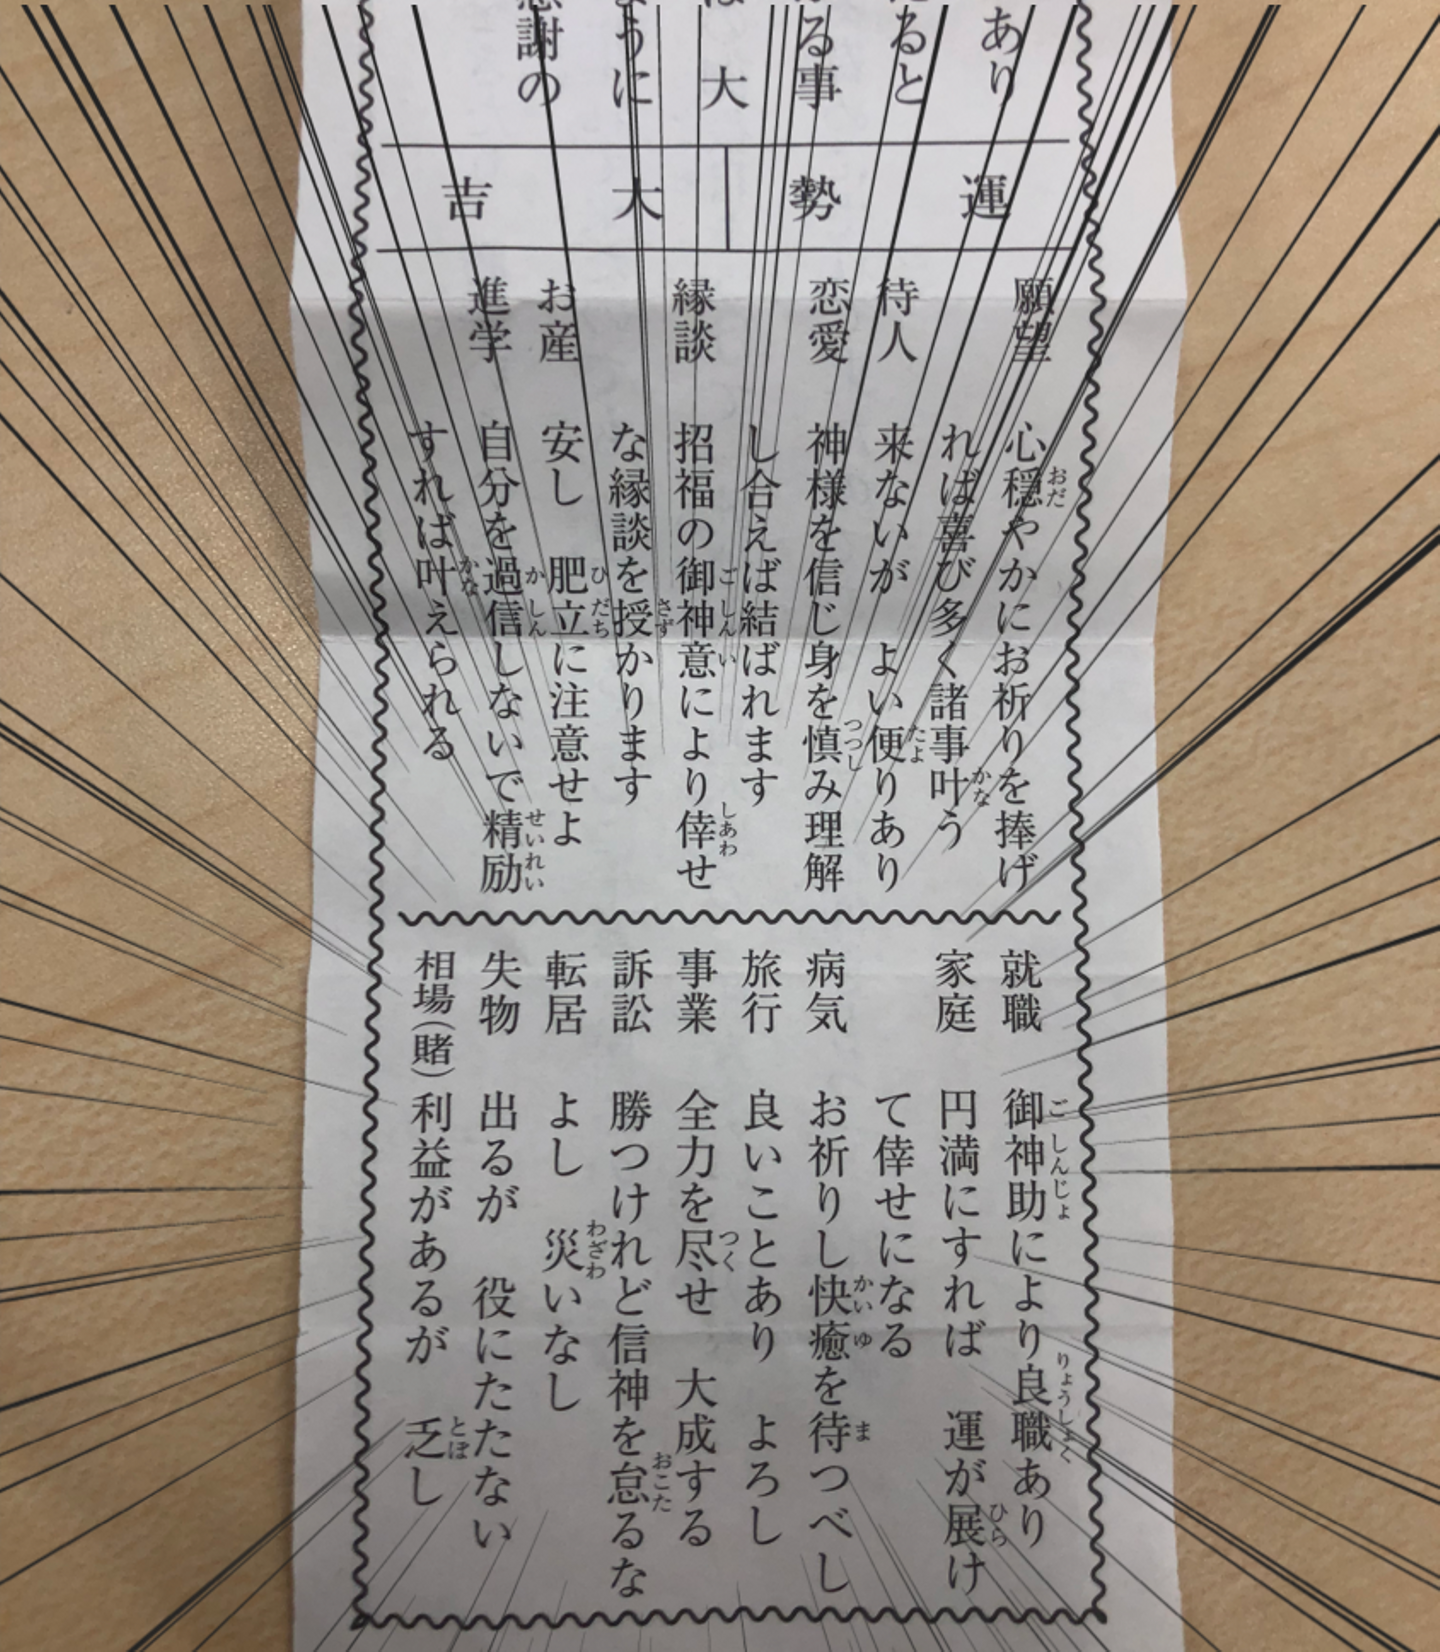 あり
ると
る事
大
うに
感謝の
運勢 大吉
願望 心穏やかにお祈りを捧げ
れば喜び多く諸事叶う
待人 来ないが よい便りあり
恋愛 神様を信じ身を慎み理解
し合えば結ばれます
縁談 招福の御神意により倖せ
な縁談を授かります
お産 安し 肥立に注意せよ
進学 自分を過信しないで精励
すれば叶えられる
就職 御神助により良職あり
家庭 円満にすれば 運が展け
て倖せになる
病気 お祈りし快癒を待つべし
旅行 良いことあり よろし
事業 全力を尽せ 大成する
訴訟 勝つけれど信神を怠るな
転居 よし 災いなし
失物 出るが 役にたたない
相場(賭) 利益があるが 乏し